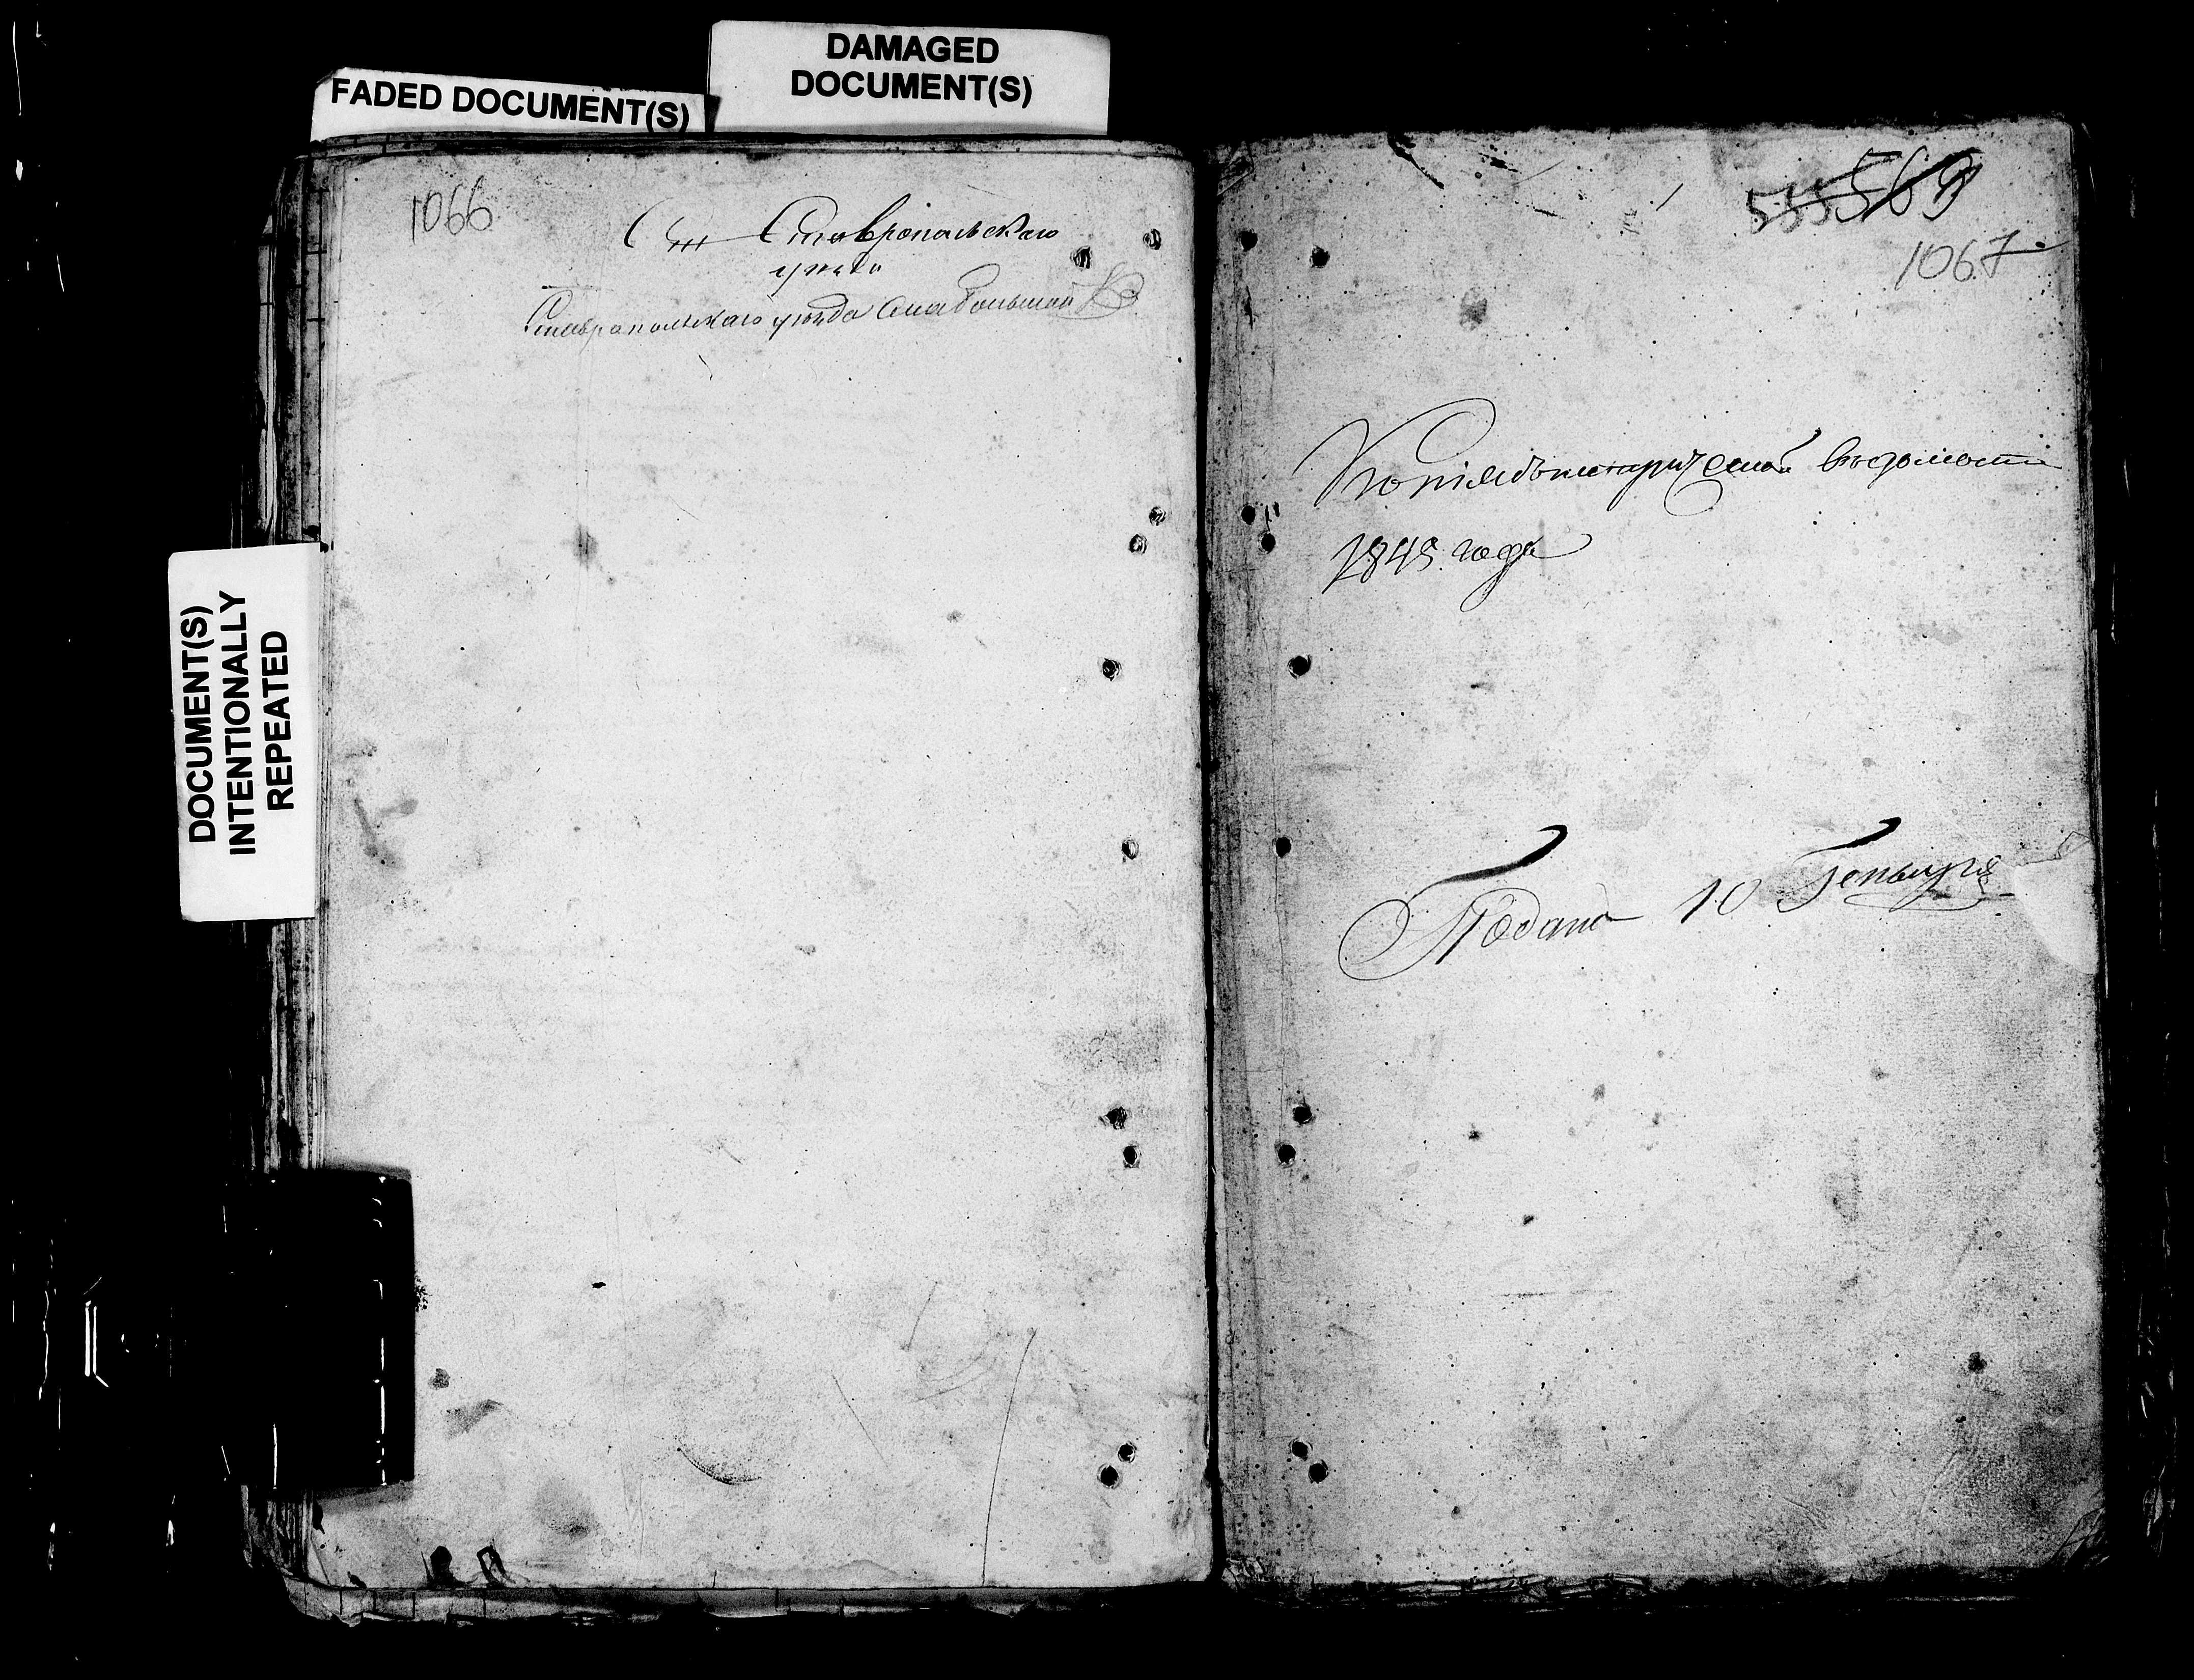 FADED DOCUMENT(S)
DAMAGED
DOCUMENT(S)
DOCUMENT(S)
INTENTIONALLY
REPEATED
1066
Ставропольскаго
уезда
Ставропольскаго уезда Села Большой
569
1067
Копія съ метрической ведомости
1845 года
Подано 10 Генваря